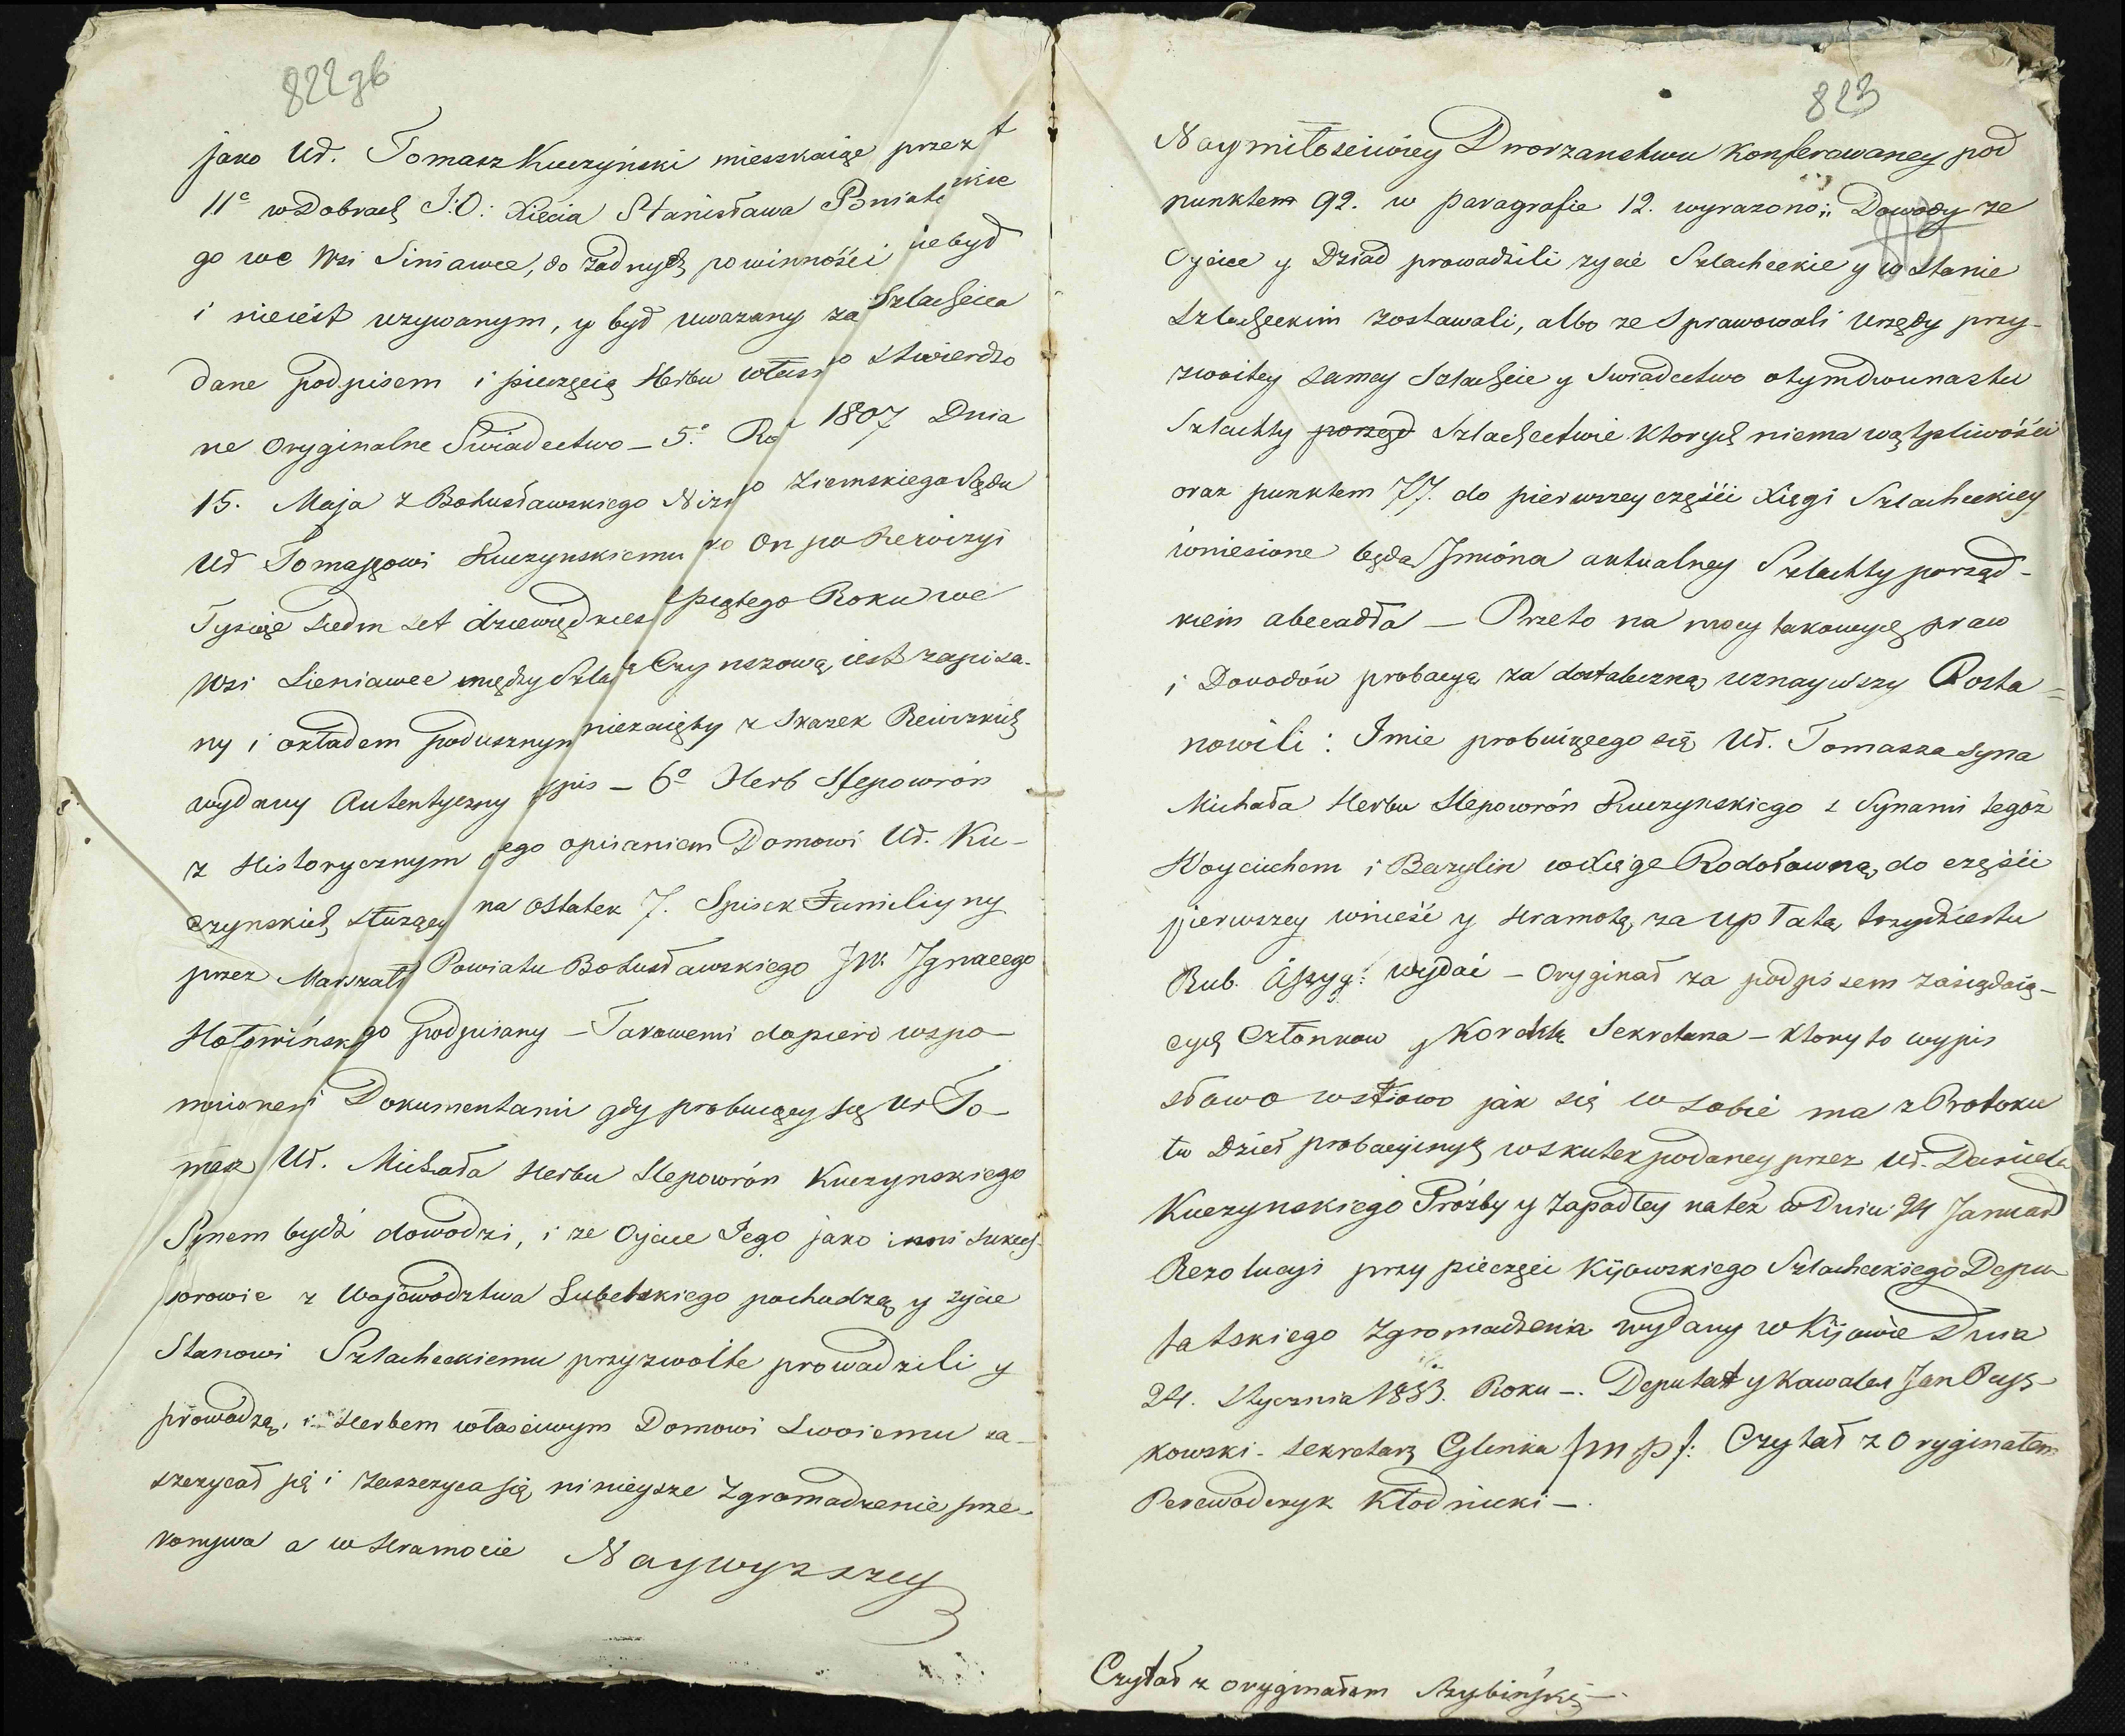 822 зв
jako Ud. Tomasz Kuczyński mieszkaiąc przez t
11c w Dobrach J:O: Xięcia Stanisława Poniato wskie
go we Wsi Siniawce, do żadnych powinnośći niebył
i nieiest uzywanym, y był uwazany za Szlachcica
dane podpisem i pieczęcią Herbu własno stwierdzo
ne Oryginalne Swiadectwo – 5.o Ro 1807 Dnia
15. Maja z Bohusławskiego Niz o Ziemskiego Sądu
Ud Tomaszowi Kuczynskiemu On po Rewizyi
Tysiąc Siedm Set dziewiędzies piątego Roku we
Wsi Sieniawce między Szla Czynszową iest zapisa-
ny i okładem podusznym niezaięty z Skazek Rewizkich
wydany Autentyczny pis – 6o Herb Slepowrón
z Historycznym jego opisaniem Domowi Ud. Ku-
czynskich służący na Ostatek 7. Spisek Familiyny
przez Marszałk Powiatu Bohusławskiego JW. Jgnacego
Hołowińsk go podpisany – Takowemi dopiero wspo-
mnionemi Dokumentami gdy probuiący się Ur To-
masz Ud. Michała Herbu Slepowrón Kuczynskiego
Synem bydź dowodzi, i ze Oyciec Jego jako i inni Sukces-
sorowie z Wojewodztwa Lubelskiego pochodzą y życie
Stanowi Szlacheckiemu przyzwoite prowadzili y
prowadzą, i Herbem własciwym Domowi Swoiemu za-
szczycał się i zaszczyca się, ninieysze Zgromadzenie prze-
konywa a w Hramocie Naywyzszey
823
Naymiłosciwiey Dworzanstwu Konferowaney pod
punktem 92. w paragrafie 12. wyrazono: „ Dowody ze
Oyciec y Dziad prowadzili zycie Szlacheckie y w Stanie
Szlacheckim zostawali, albo ze Sprawowali Urzędy przy-
zwoitey samey Szlachcie y Swiadectwo o tym dwunastu
Szlachty porząd Szlachectwie Ktorych niema wątpliwośći
oraz punktem 77. do pierwszey częśći Xięgi Szlacheckiey
wniesione będą Jmióna aktualney Szlachty porząd-
kiem abecadła – Przeto na mocy takowych praw
i Dowodów probacyą za dostateczną uznaywszy Posta=
nowili: Jmie probuiącego się Ud. Tomasza Syna
Michała Herbu Slepowrón Kuczynskiego z Synami tegoż
Woyciechem i Bazylim w Xięgę Rodosławną, do częśći
pierwszey wnieść y Hramotę, za Upłatą trzydziestu
Rub. Assyg: wydać – Oryginał za podpisem zasiądaią-
cych Członkow y Kordktą Sekretarza – Ktory to wypis
słowo w słowo jak się w sobie ma z Protoku
łu Dzieł probacyinych w skutek podaney przez Ud. Daniela
Kuczynskiego Prózby y Zapadłey na też w Dniu 24 Januar
Rezolucyi przy pieczęci Kijowskiego Szlacheckiego Depu
tatskiego Zgromadzenia wydany w Kijowie Dnia
24. Stycznia 1833. Roku –. Deputat y Kawaler Jan
kowski – Sekretarz Glinka /mp/: Czytał z Oryginałem
Perewodczyk Kłodnicki –.
Czytał z oryginałem